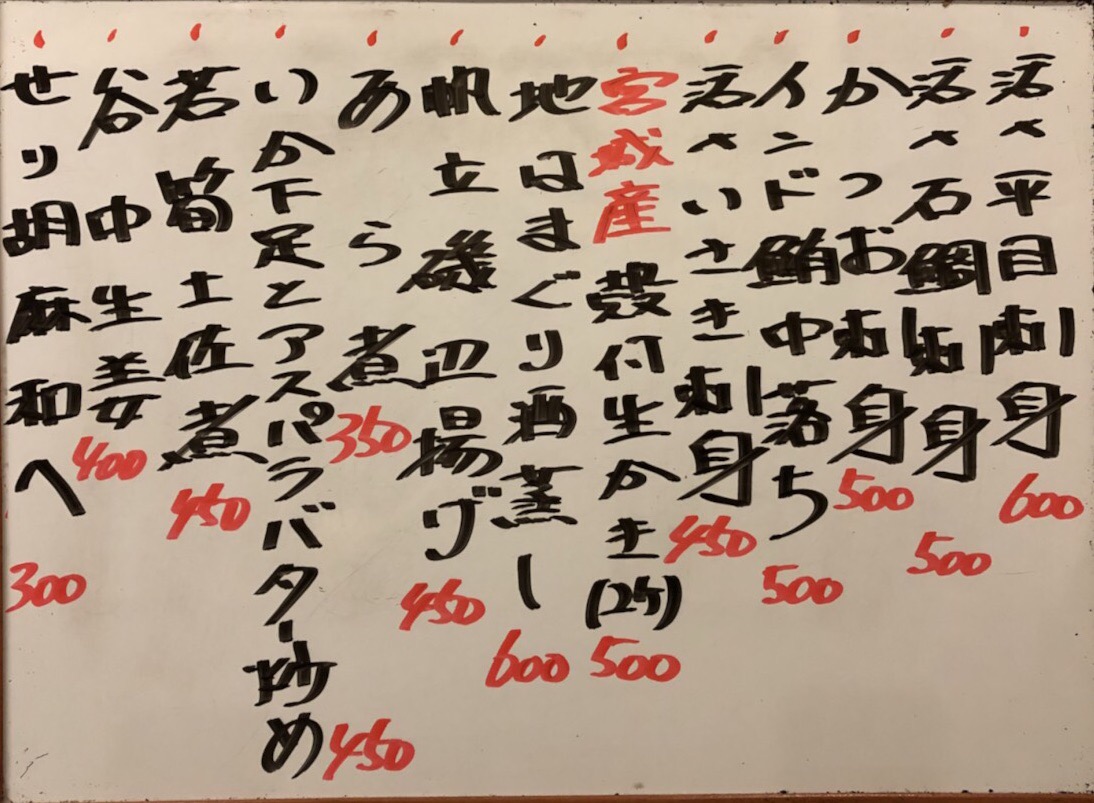 活〆平目刺身 600
活〆石鯛刺身 500
かつお刺身 500
インド鮪中落ち 500
活〆いさき刺身 450
宮城産殻付生かき(2ケ) 500
地はまぐり酒蒸し 600
帆立磯辺揚げ 450
あら煮 350
いか下足とアスパラバター炒め 450
若筍土佐煮 450
谷中生姜 400
せり胡麻和へ 300